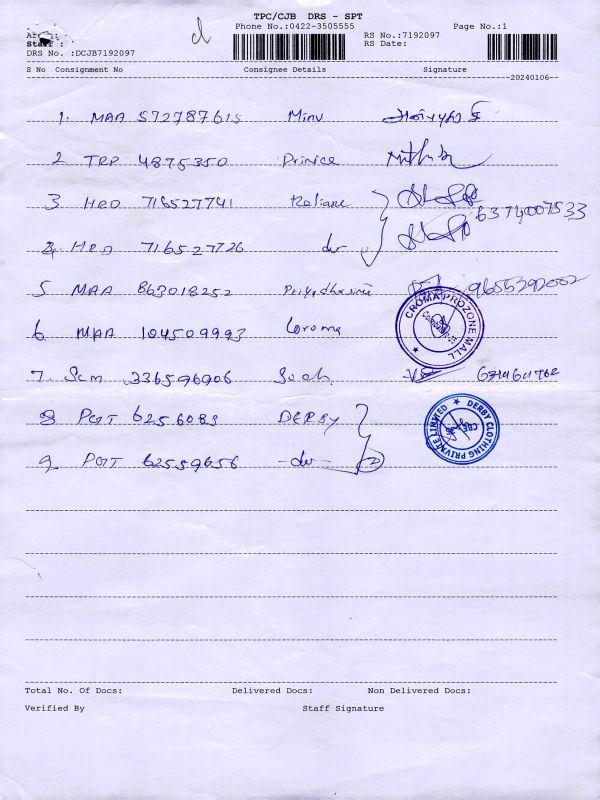 TPC/CJB DRS - SPT
Phone No.:0422-3505555 Page No.:1
RS No.:7192097
Staff :
RS Date:
DRS No. :DCJB7192097
S No Consignment No Consignee Details Signature
20240106
1. MAA 572787615 Minu
2 TRP 4875350 Prinice
3 HRD 716527741 Reliane
6374007533
4 HRD 716527726 do
5 MAA 863018252 Priyadharsini 9655392002
6 MAA 104509993 Coroma
CROMA PROZONE MALL
7. Scm 336596906
8 PGT 6256083 DERBY
DERBY CLOTHING PRIVATE LIMITED
CBE
9 PGT 62559656 -do- 2
Total No. Of Docs: Delivered Docs: Non Delivered Docs:
Verified By Staff Signature